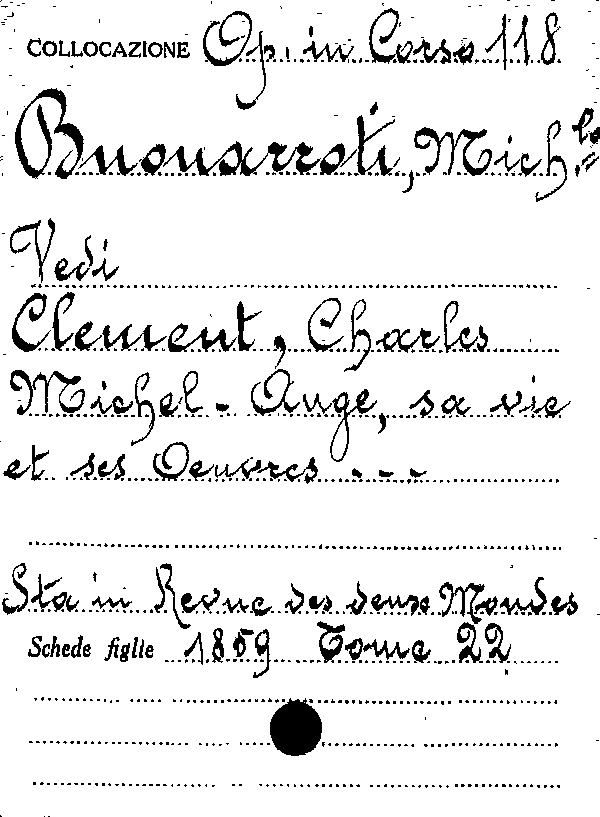 COLLOCAZIONE Op. in Corso 118
Buonarroti, Mich.lo
Vedi
Clement, Charles
Michel-Ange, sa vie
et ses Oeuvres ---
Sta in Revue des deux Mondes
Schede figlie 1859 Tome 22